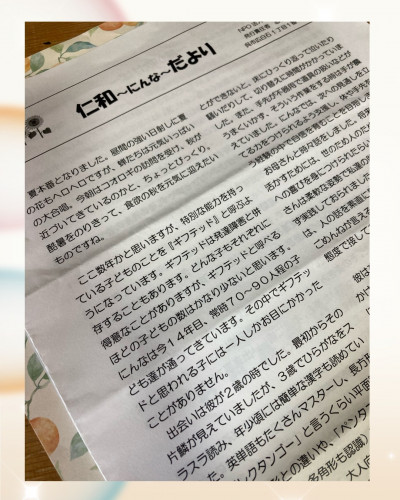 NPO法
発行責任者
仁和〜にんな〜だより
夏本番となりました。昼間の強い日射しに夏
の花もヘロヘロですが、蝉たちは元気いっぱい
の大合唱。今朝はコオロギの訪問を受け、秋が
近づいてきているのかと、ちょっとびっくり。
酷暑をのりきって、食欲の秋を元気に迎えたい
ものですね。
ここ数年かと思いますが、特別な能力を持っ
ている子どものことを『ギフテッド』と呼ぶよ
うになっています。ギフテッドは発達障害と併
存することもあります。どんな子もそれぞれに
得意なことがありますが、ギフテッドと呼べる
ほどの子どもの数はかなり少ないと思います。
にんなは今１４年目、常時７０〜９０人程の子
ども達が通ってきています。その中でギフテッ
ドと思われる子には一人しかお目にかかった
ことがありません。
出会いは彼が２歳の時でした。最初からその
片鱗が見えていましたが、３歳でひらがなをス
ラスラ読み、年少頃には簡単な漢字も読めてい
た。英単語もたくさんマスターし、長方形
レクタンゴー」と言うくらい平面
形との違いや、「ペンタ
多角形も認識）
大人向
とができないと、床にひっくり返って泣いたり
騒いだりして、切り替えに時間がかかっていま
した。また、手先が不器用で道具の扱いなどが
うまくいかず、そういう作業をする時は手が震
えていました。にんなでは、次への見通しを立
てる力をつけられるよう支援し、体や手先を
う経験の中で自信を育むことを目指し
お母さんと時々話をしました。将来
活かすためには、世のため人のため
への喜びを身につけられたらいい
さんは柔軟な姿勢で私達の
ず実践しておられました
は、人の話を素直に
ごめんなさいが言え
態度で接して
彼は
かけ